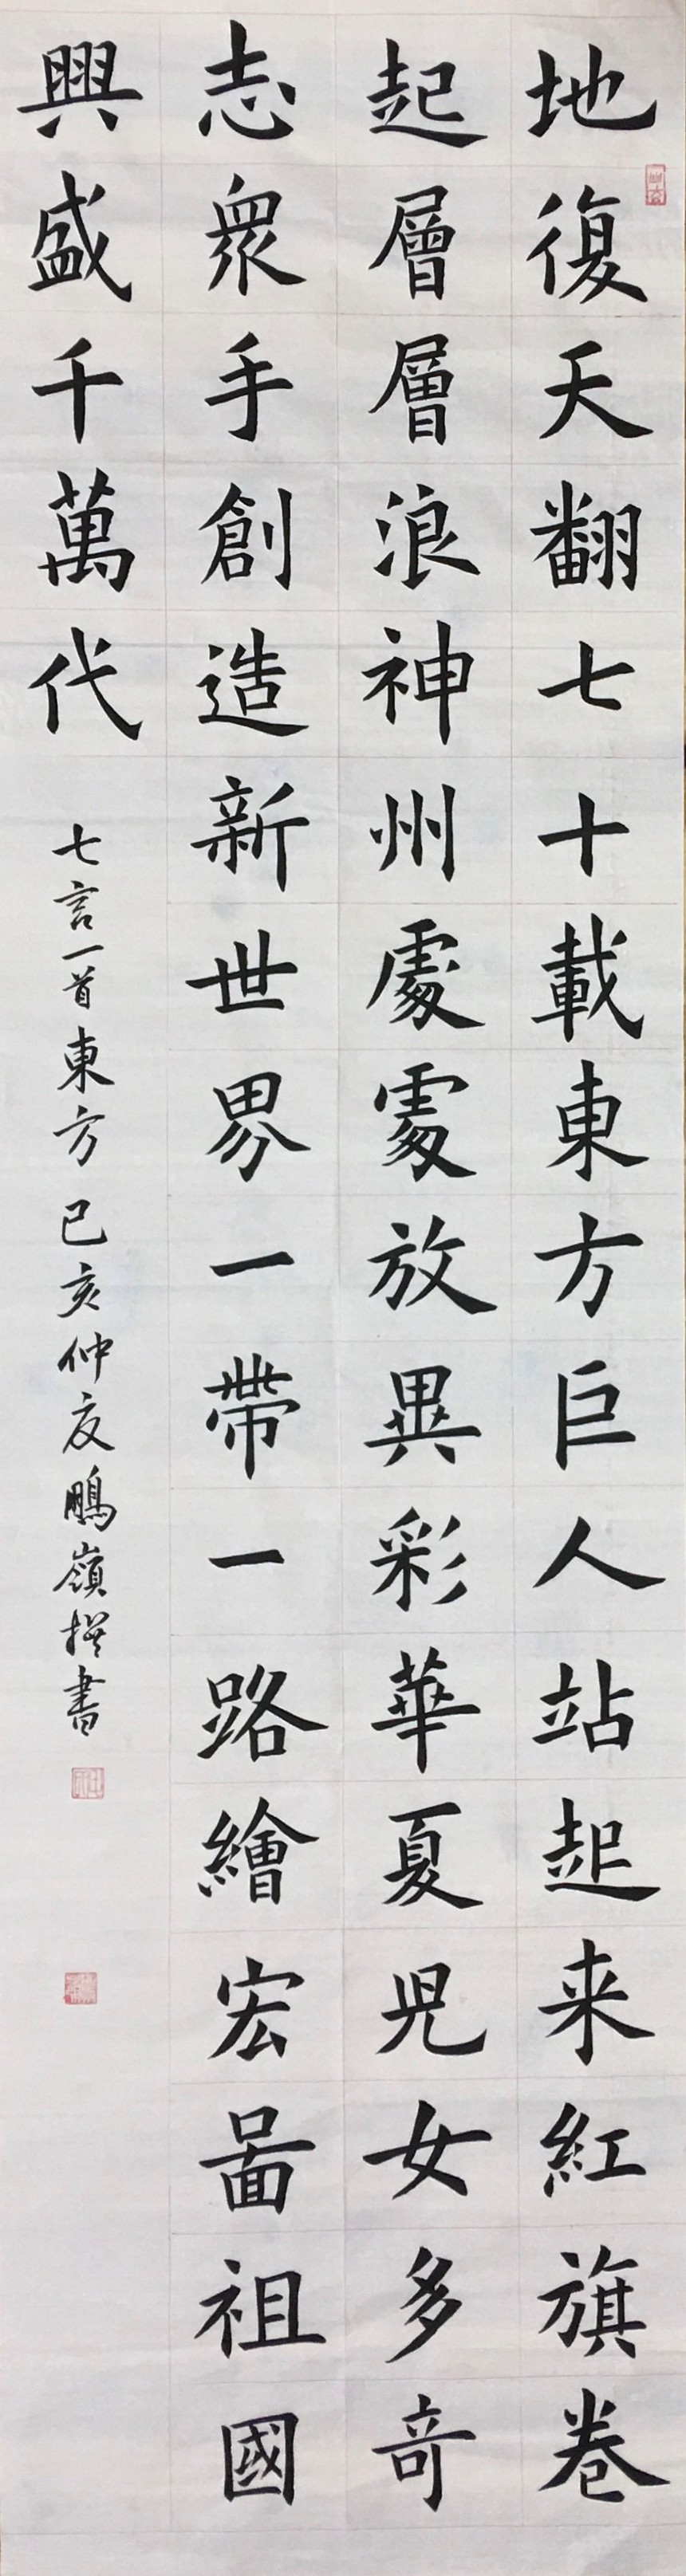 地復天翻七十載東方巨人站起来紅旗卷
起層層浪神州處處放異彩華夏児女多奇
志衆手創造新世界一帶一路繪宏圖祖國
興盛千萬代
七言一首東方 己亥仲夏鵬嶺撰書